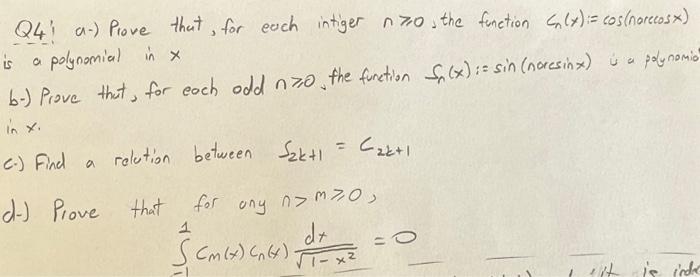 Q4: a-) Prove that, for each intiger n≥0, the function Cₙ(x):= cos(narccosx)
is a polynomial in x
b-) Prove that, for each odd n≥0, the function Sₙ(x):= sin(narcsinx) is a polynomial
in x.
c-) Find a relation between S₂ₖ₊₁ = C₂ₖ₊₁
d-) Prove that for any n>m≥0,
∫₋₁¹ Cm(x) Cn(x) dx/√(1-x²) = 0